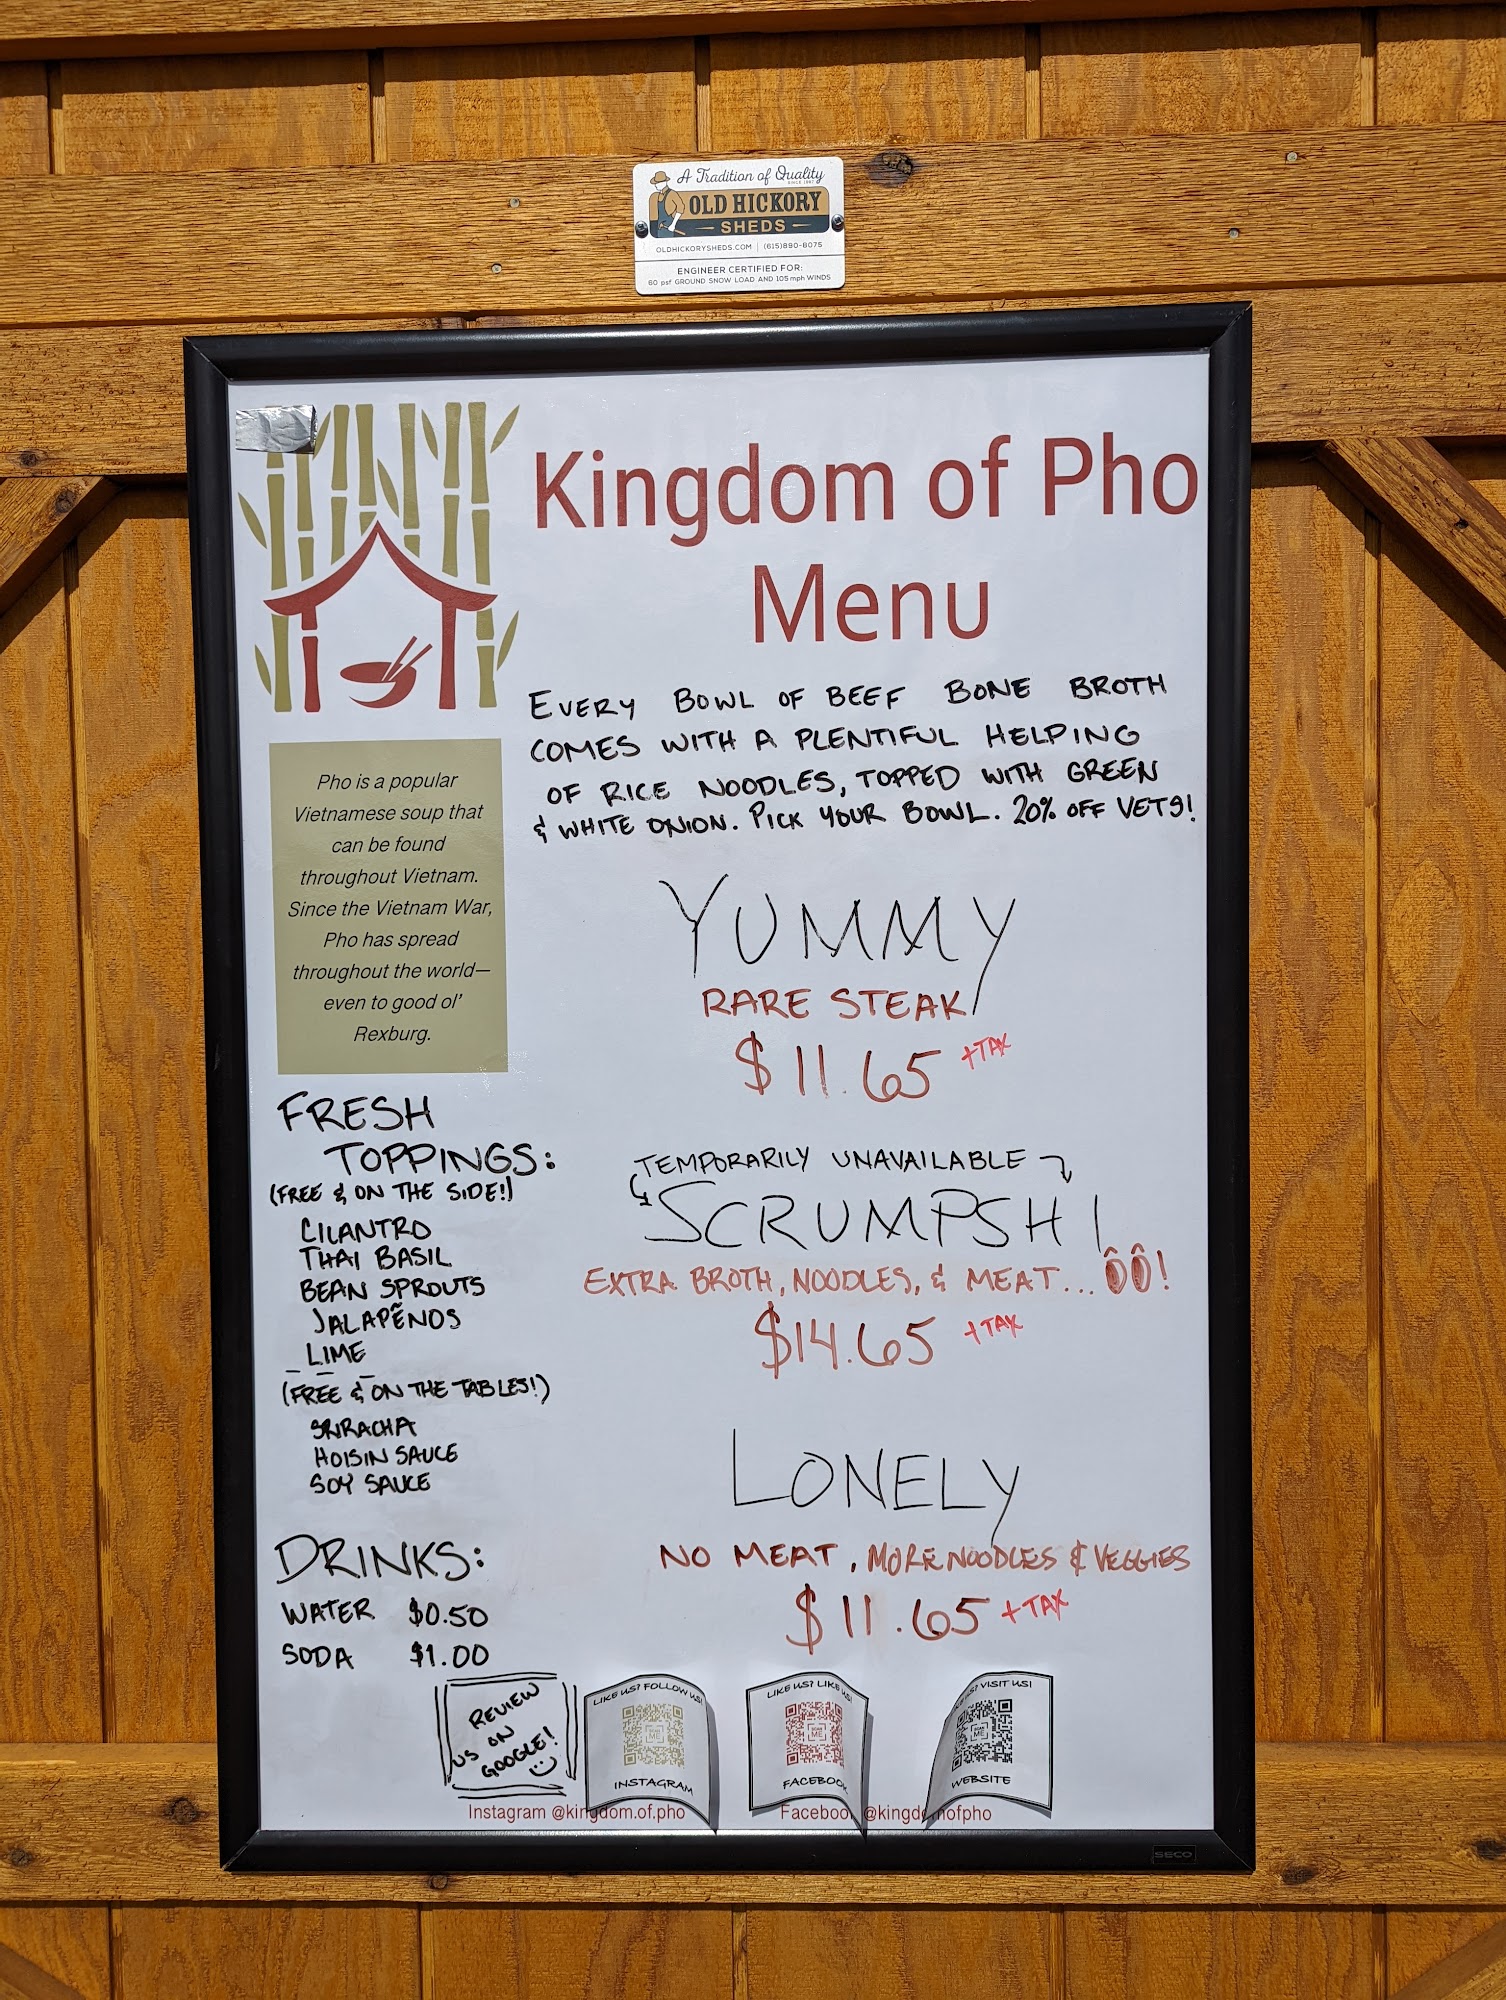 A Tradition of Quality
SINCE 1987
OLD HICKORY
SHEDS
OLDHICKORYSHEDS.COM | (615)890-8075
ENGINEER CERTIFIED FOR:
60 psf GROUND SNOW LOAD AND 105 mph WINDS
Kingdom of Pho
Menu
EVERY BOWL OF BEEF BONE BROTH
COMES WITH A PLENTIFUL HELPING
OF RICE NOODLES, TOPPED WITH GREEN
& WHITE ONION. PICK YOUR BOWL. 20% OFF VETS!
Pho is a popular
Vietnamese soup that
can be found
throughout Vietnam.
Since the Vietnam War,
Pho has spread
throughout the world—
even to good ol’
Rexburg.
YUMMY
RARE STEAK
$11.65 +TAX
TEMPORARILY UNAVAILABLE
SCRUMPSH!
EXTRA BROTH, NOODLES, & MEAT... ÔÔ!
$14.65 +TAX
LONELY
NO MEAT, MORE NOODLES & VEGGIES
$11.65 +TAX
FRESH
TOPPINGS:
(FREE & ON THE SIDE!)
CILANTRO
THAI BASIL
BEAN SPROUTS
JALAPEÑOS
LIME
(FREE & ON THE TABLES!)
SRIRACHA
HOISIN SAUCE
SOY SAUCE
DRINKS:
WATER $0.50
SODA $1.00
REVIEW
US ON
GOOGLE!
LIKE US? FOLLOW US!
INSTAGRAM
LIKE US? LIKE US!
FACEBOOK
US? VISIT US!
WEBSITE
Instagram @kingdom.of.pho
Facebook @kingdomofpho
SECO